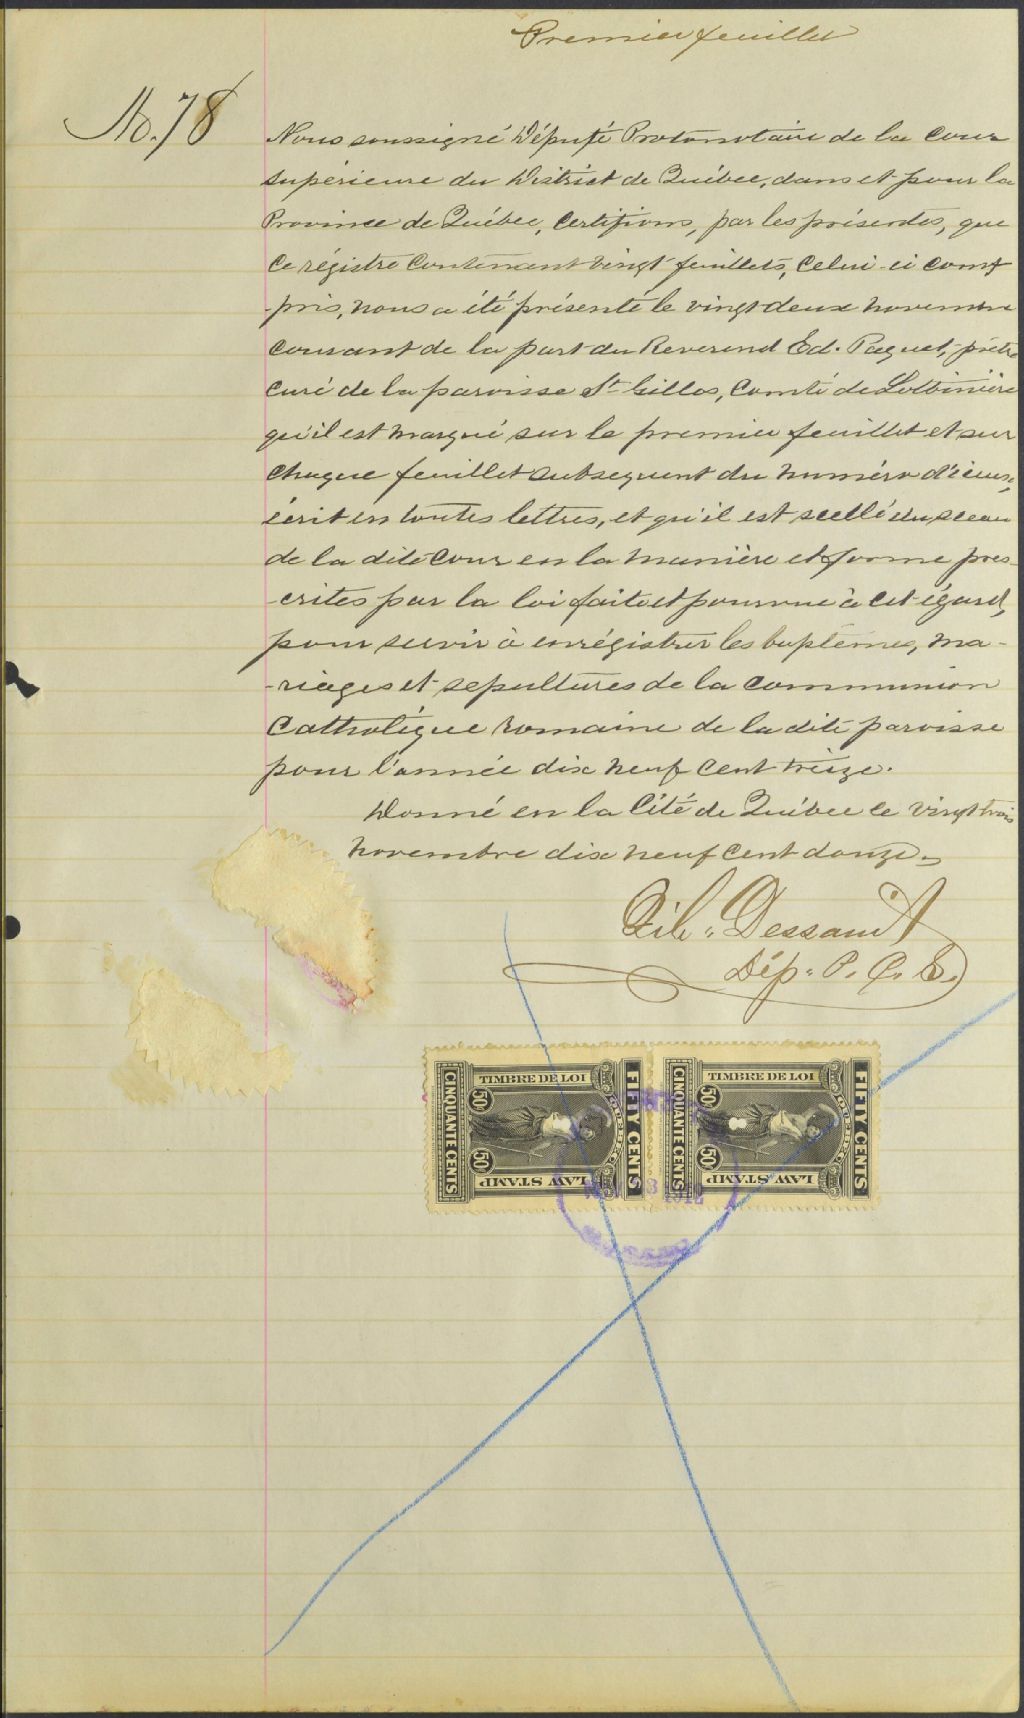 Premier feuillet
No. 78
Nous soussigné Député Protonotaire de la Cour
Supérieure du District de Québec, dans et pour la
Province de Québec, Certifions, par les présentes, que
Ce régistre Contenant vingt feuillets, Celui-ci com
-pris, nous a été présenté le vingt deux novembre
courant de la part du Reverend Ed. Paquet, prêtre
curé de la paroisse St Gilles, Comté de Lotbinière
qu'il est marqué sur le premier feuillet et sur
chaque feuillet subsequent du numéro d'iceux,
écrit en toutes lettres, et qu'il est scellé du sceau
de la dite Cour en la manière et forme pres
-crites par la loi faite et pourvue à cet égard,
pour servir à enrégistrer les baptêmes, ma-
-riages et sepultures de la communion
Catholique romaine de la dite paroisse
pour l'année dix neuf cent treize.
Donné en la Cité de Québec ce vingt trois
novembre dix neuf cent douze.
Dessault
Dép. P. C. S.
TIMBRE DE LOI
FIFTY CENTS
CINQUANTE CENTS
QUEBEC
50c
50c
LAW STAMP
TIMBRE DE LOI
FIFTY CENTS
CINQUANTE CENTS
QUEBEC
50c
50c
LAW STAMP
1912